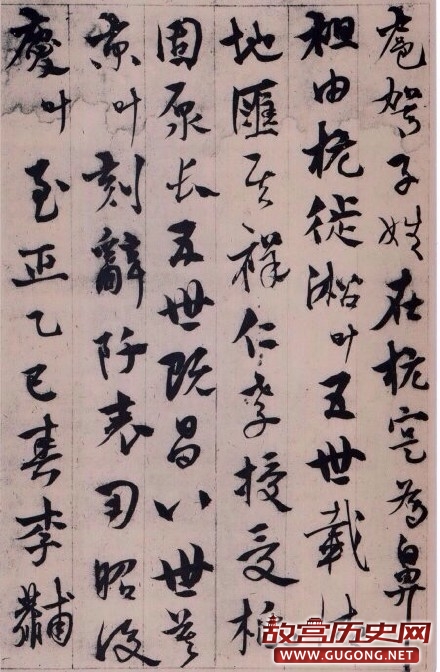 子姓在杭寔為鼻
祖由杭徙叶五世載
地匯其祥仁孝授受柢
固原長五世既昌八世莫
京叶刻辭阡表用昭後
慶叶至正乙巳春李黼
故宫历史网
WWW.GUGONG.NET